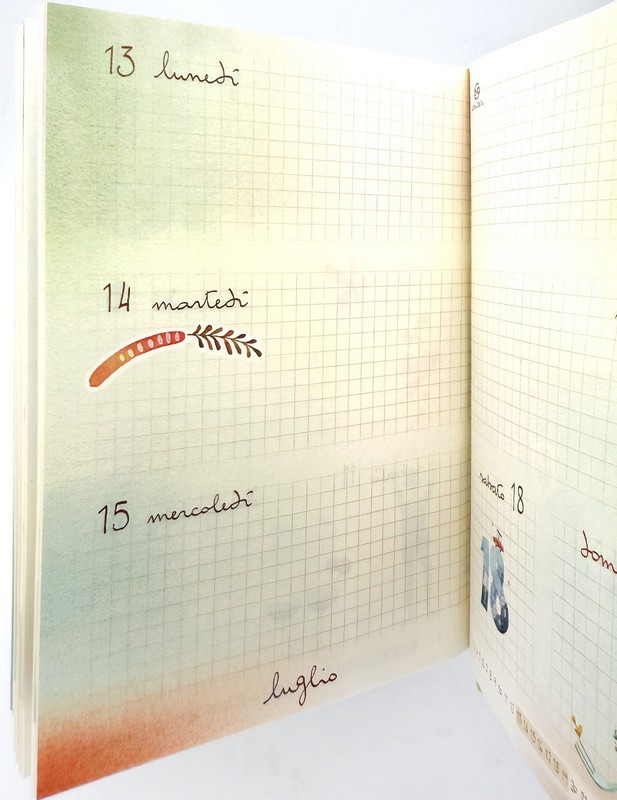 13 lunedì
14 martedì
15 mercoledì
luglio
sabato 18
18